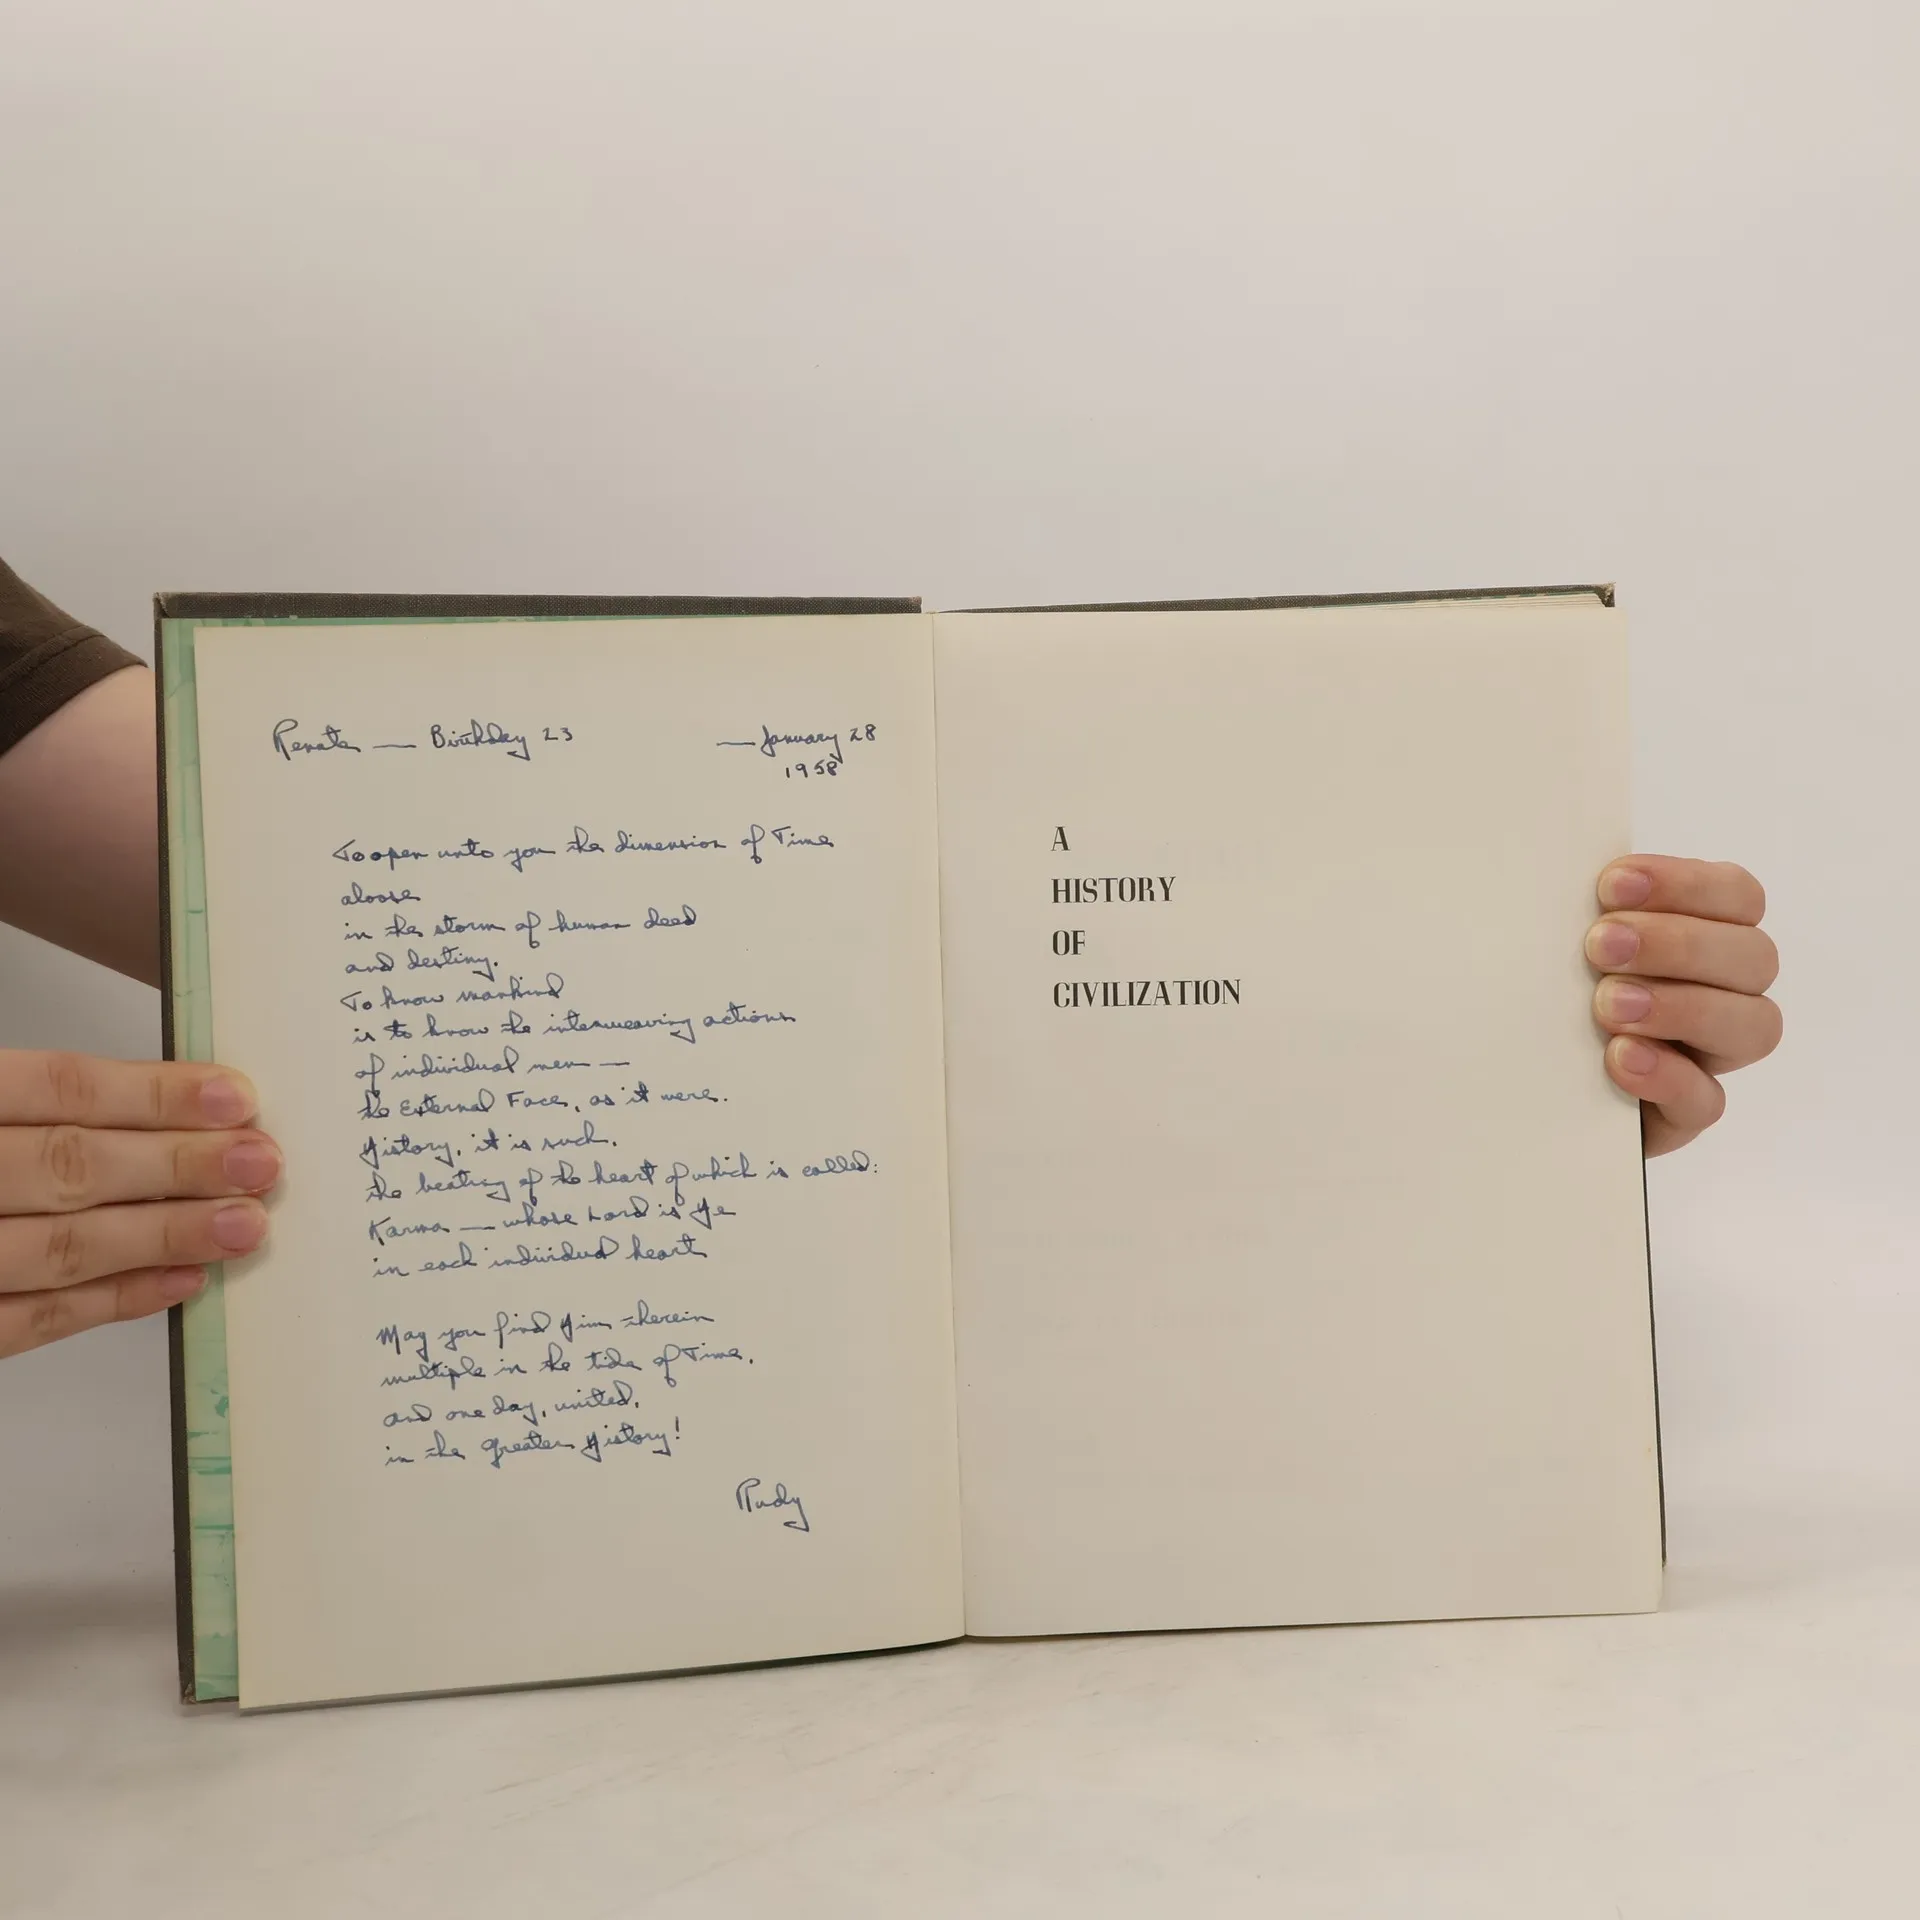 Renate — Birthday 23 — January 28
1958
To open unto you the dimension of Time
aloose
in the storm of human deed
and destiny.
To know mankind
is to know the interweaving actions
of individual men —
the External Face, as it were.
History, it is such,
the beating of the heart of which is called:
Karma — whose Lord is He
in each individual heart
May you find Him therein
multiple in the tide of Time,
and one day, united,
in the greater History!
Rudy
A
HISTORY
OF
CIVILIZATION